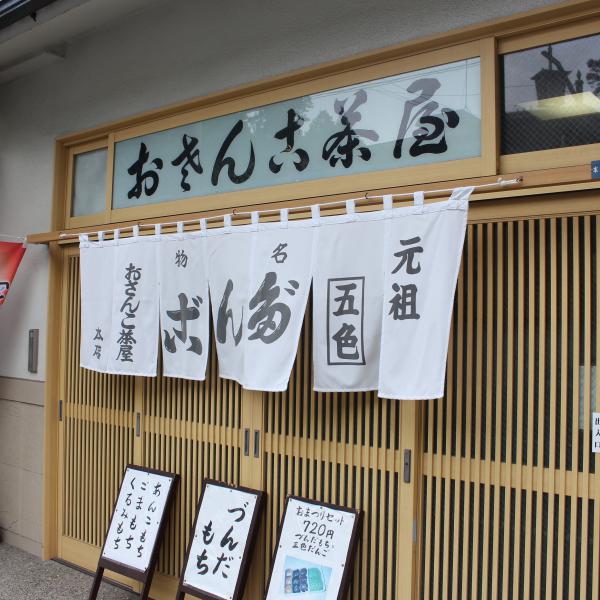 おさんこ茶屋
元祖
五色
名物
だんご
おさんこ茶屋
本店
あんこもち
ごまもち
くるみもち
づんだ
もち
おまつりセット
720円
づんだもち
五色だんご
出入口